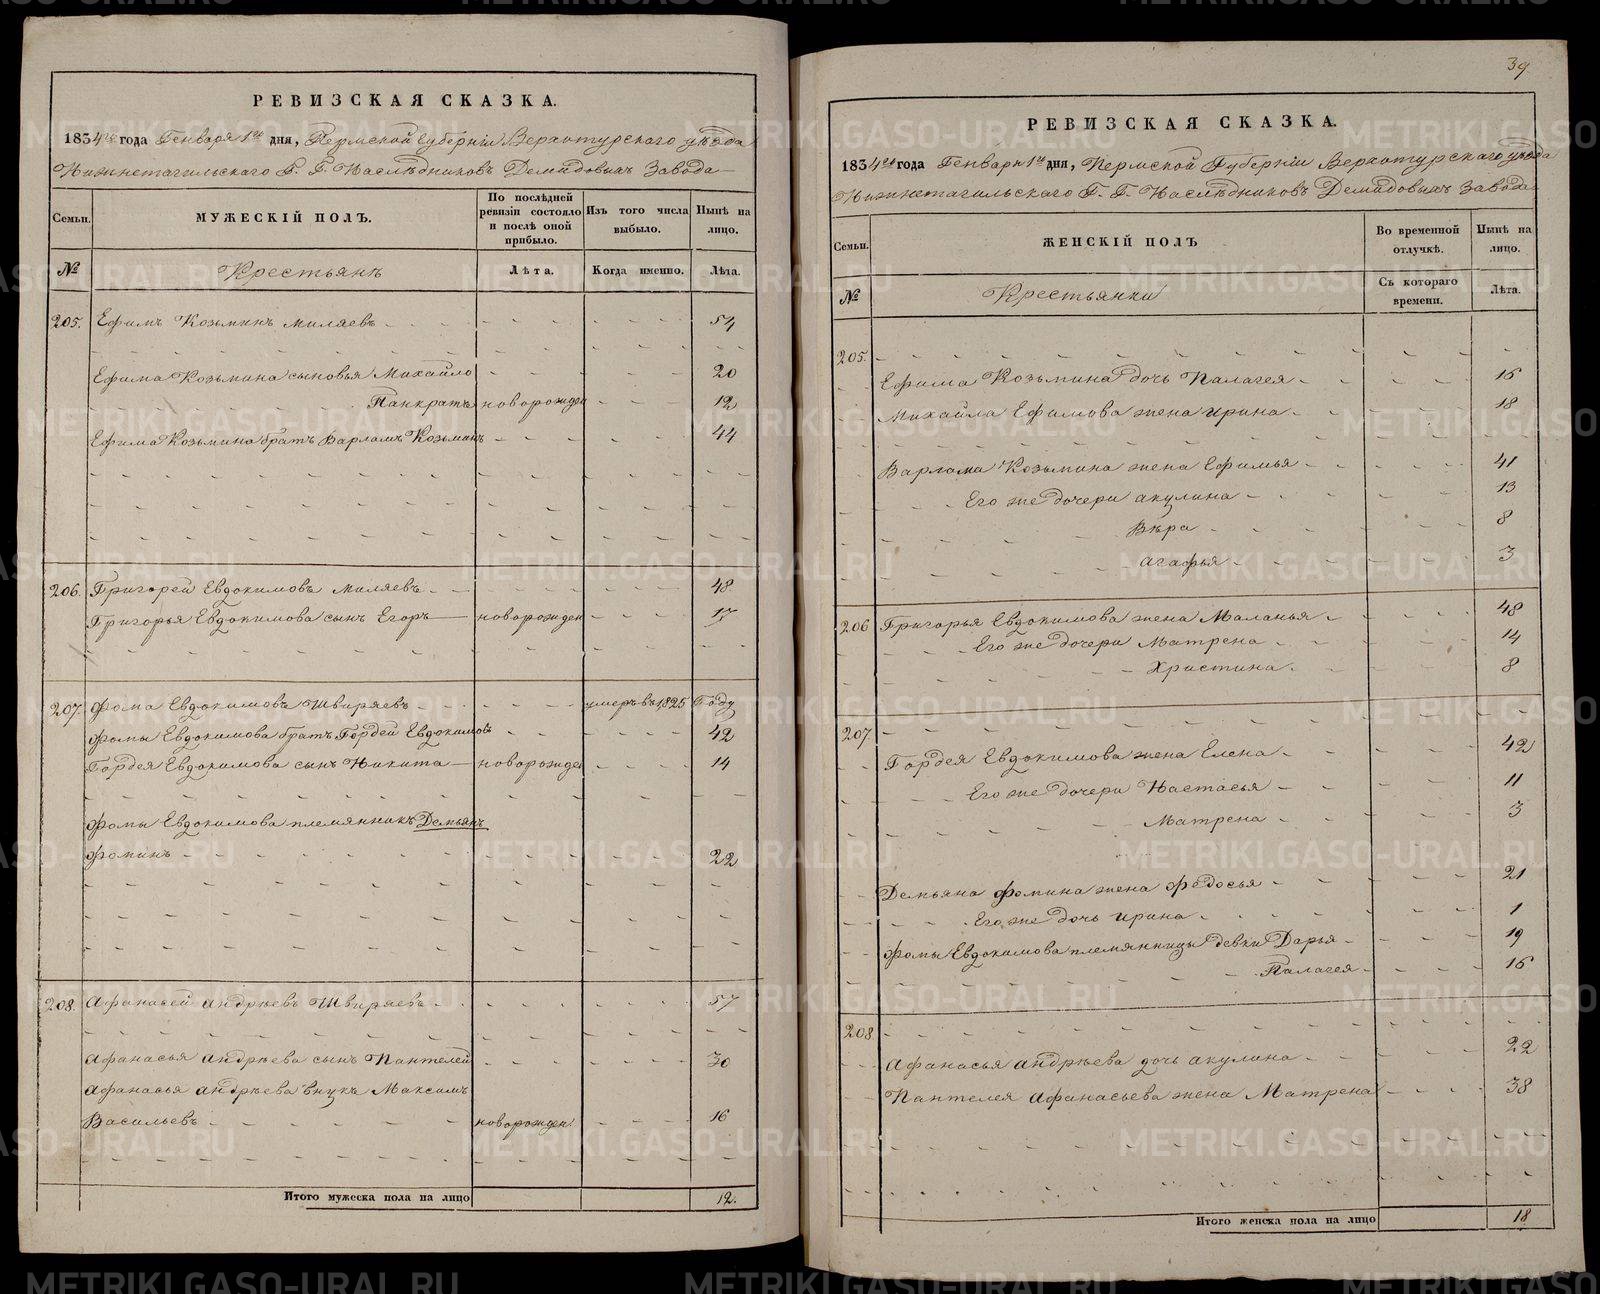 РЕВИЗСКАЯ СКАЗКА.
1834го года Генваря 1го дня, Пермской Губерніи Верхотурскаго уѣзда
Нижнетагильскаго Г. Г. Наслѣдниковъ Демидовыхъ Завода
Семьи.
МУЖЕСКІЙ ПОЛЪ.
По послѣдней ревизіи состояло и послѣ оной прибыло.
Изъ того числа выбыло.
Нынѣ на лицо.
№
Крестьянъ
Лѣта.
Когда именно.
Лѣта.
205. Ефимъ Козьминъ Миляевъ 54
Ефима Козьмина сыновья Михайло 20
Панкратъ новорожден 12
Ефима Козьмина братъ Варламъ Козьминъ 44
206. Григорей Евдокимовъ Миляевъ 48
Григорья Евдокимова сынъ Егоръ новорожден 17
207. Фома Евдокимовъ Швиряевъ умеръ въ 1825 Году
Фомы Евдокимова братъ Гордей Евдокимовъ 42
Гордея Евдокимова сынъ Никита новорожден 14
Фомы Евдокимова племянникъ Демьянъ
Фоминъ 22
208. Афанасей Андрѣевъ Швиряевъ 57
Афанасья Андрѣева сынъ Пантелей 30
Афанасья Андрѣева внукъ Максимъ
Васильевъ новорожден 16
Итого мужеска пола на лицо 12.
39
РЕВИЗСКАЯ СКАЗКА.
1834го года Генваря 1го дня, Пермской Губерніи Верхотурскаго уѣзда
Нижнетагильскаго Г. Г. Наслѣдниковъ Демидовыхъ Завода
Семьи.
ЖЕНСКІЙ ПОЛЪ
Во временной отлучкѣ.
Нынѣ на лицо.
№
Крестьянки
Съ котораго времени.
Лѣта.
205.
Ефима Козьмина дочь Палагея 16
Михайла Ефимова жена Ирина 18
Варлама Козьмина жена Ефимья 41
Его же дочери Акулина 13
Вѣра 8
Агафья 3
206 Григорья Евдокимова жена Маланья 48
Его же дочери Матрена 14
Христина 8
207.
Гордея Евдокимова жена Елена 42
Его же дочери Настасья 11
Матрена 3
Демьяна Фомина жена Федосья 21
Его же дочь Ирина 1
Фомы Евдокимова племянницы девки Дарья 19
Палагея 16
208
Афанасья Андрѣева дочь Акулина 22
Пантелея Афанасьева жена Матрена 38
Итого женска пола на лицо 18
METRIKI.GASO-URAL.RU